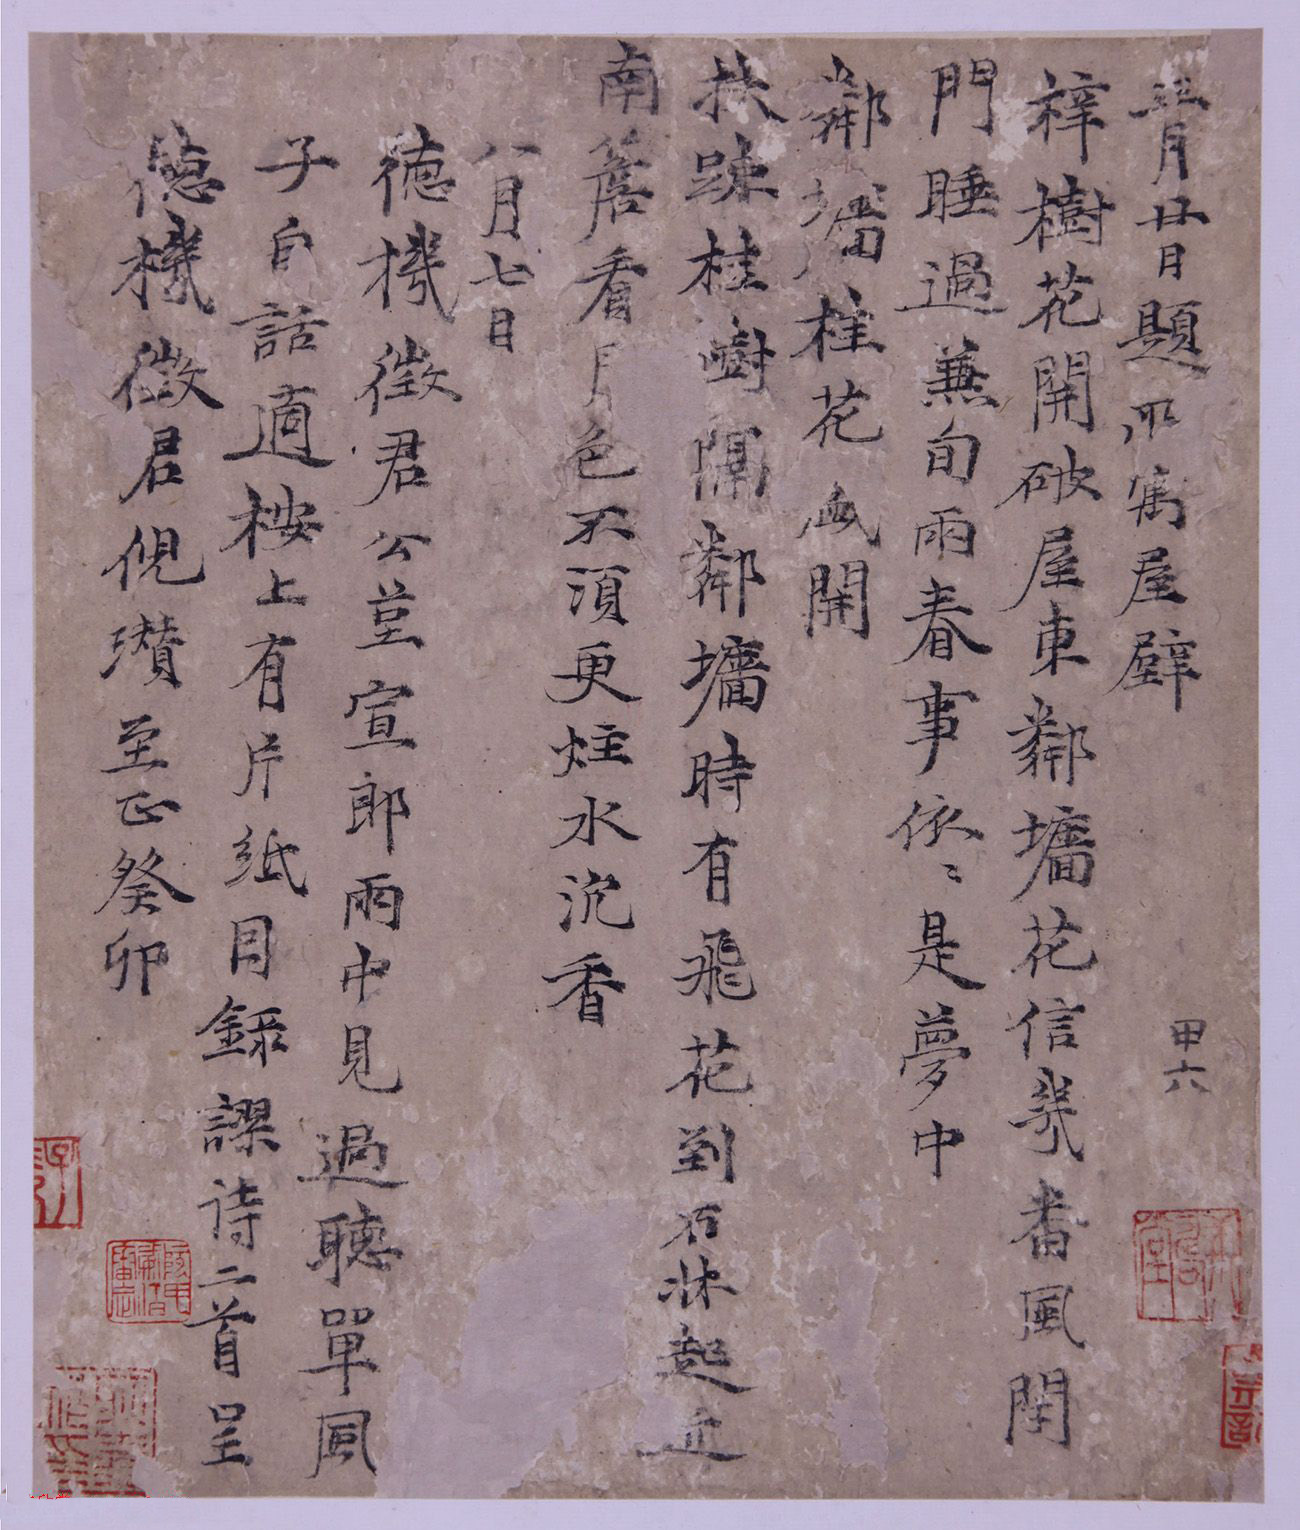 三月廿日題所寓屋壁
梓樹花開破屋東鄰墻花信幾番風閉
門睡過兼旬雨春事依〻是夢中
鄰墻桂花𠕂開
扶踈桂樹隔鄰墻時有飛花到石牀起近
南簷看月色不須更炷水沉香
八月七日
德機徵君公莖宣郎雨中見過聽單鳳
子自話適桉上有片紙目錄謬诗二首呈
德機徵君倪瓚至正癸卯
甲六